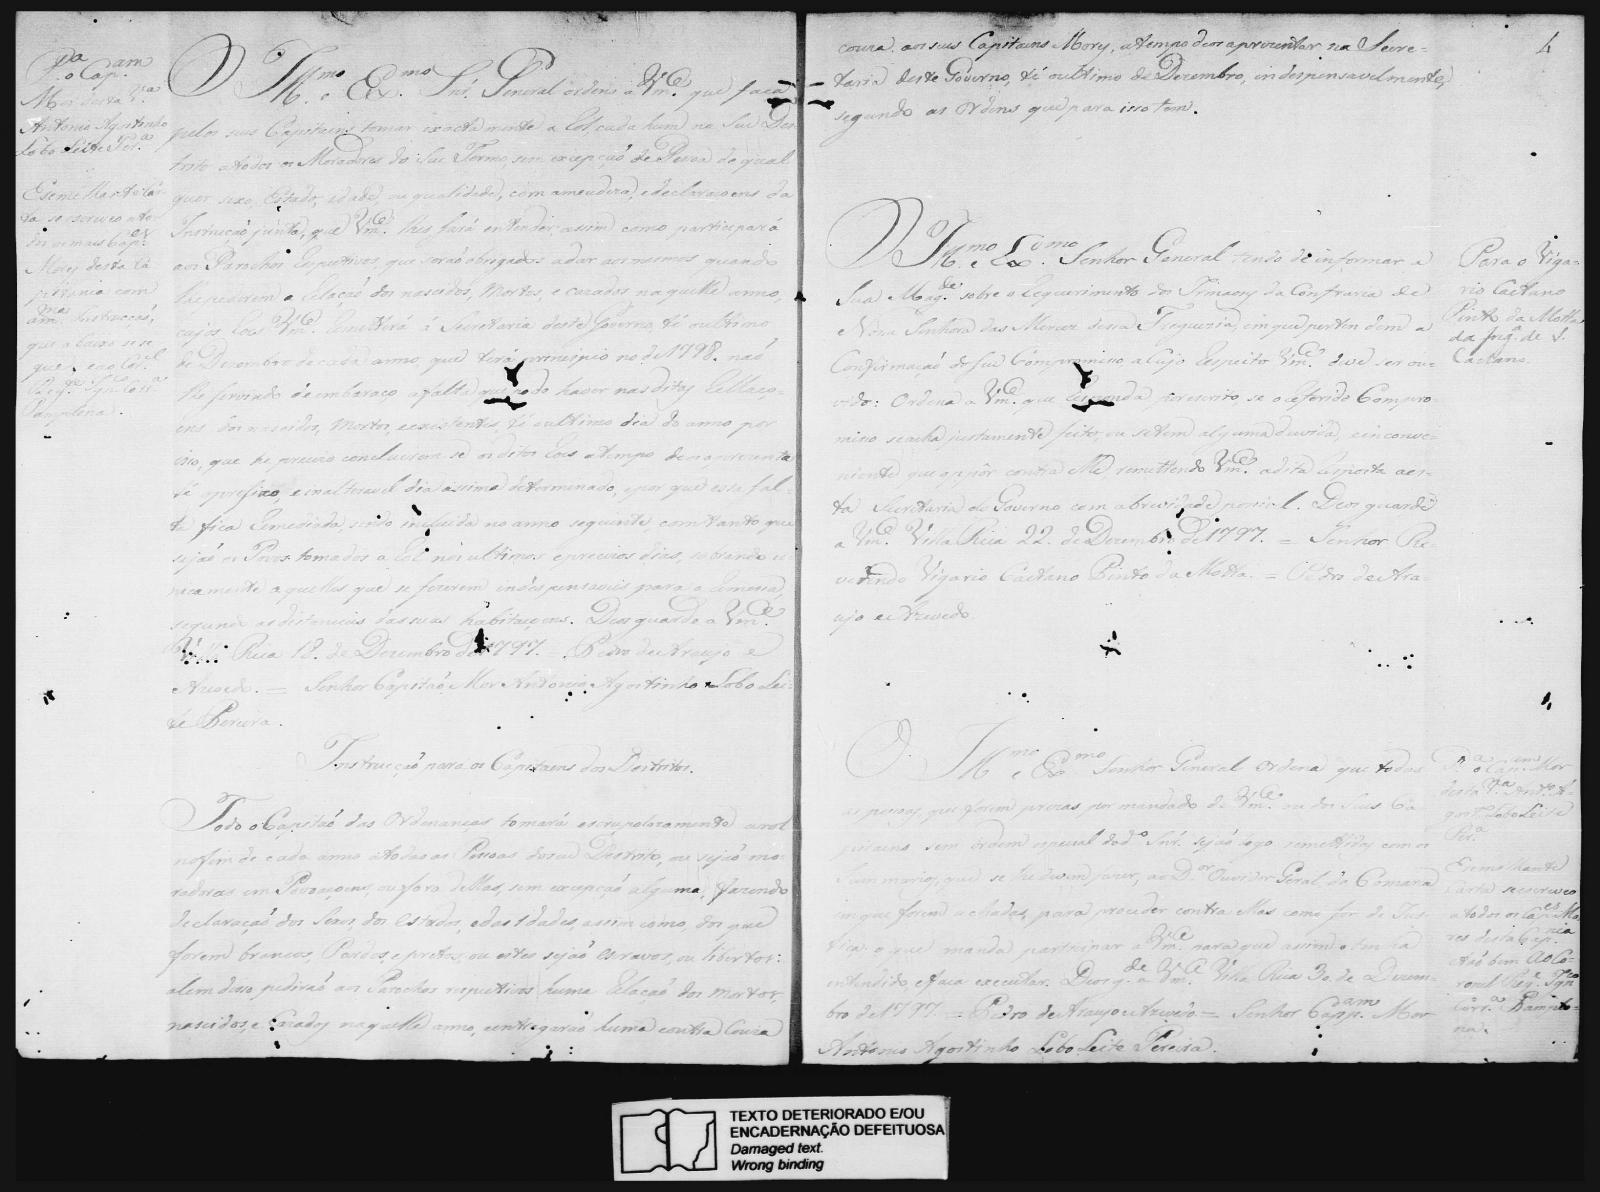 P.ª o Cap.am
Mor desta V.ª
Antonio Agostinho
Lobo Leite Per.ª
Esemelhante Car-
ta se escreveo a to-
dos os mais Cap.es
Mores desta Ca-
pitania com
as m.mas Instrucçoẽs,
que abaixo se se-
gue, e ao Cor.el
Pamplona.
O Ill.mo e Ex.mo Snr. General ordena a Vm.ce que faça
pelos seus Capitaens tomar exactamente a Rol, cada hum no seu Des-
trito a todos os Moradores do seu Termo, sem excepçaõ de Pessoa de qual
quer sexo, Estado, idade, ou qualidade, com a meudeza, e declaraçoens da
Instrucçaõ junta, que Vm.ce lhes fará entender; assim como participará
aos Parochos respectivos que seraõ obrigados a dar aos mesmos quando
lhe pedirem a Relaçaõ dos nascidos, mortos, e cazados naquelle anno,
cujos Roes Vm.ce remetterá á Secretaria deste Governo, té o ultimo
de Dezembro de cada anno, que terá principio no de 1798. naõ
lhe servindo de embaraço a falta que pode haver nas ditas Rellaço-
ens dos nascidos, mortos, e existentes, té o ultimo dia do anno por
isso, que he preciso concluirem se os ditos Roes a tempo de os aprezentar
té o prefixo, e inalteravel dia assima determinado, e por que essa fal-
ta fica remediada, sendo incluida no anno seguinte, com tanto que
sejaõ os Povos tomados a Rol nos ultimos e precizos dias, sobrando u-
nicamente aquelles que se fizerem indespensaveis para a remessa,
segundo as distancias das suas habitaçoens. Deos guarde a Vm.ce
Villa Rica 18. de Dezembro de 1797. = Pedro de Araujo e
Azevedo. = Senhor Capitaõ Mor Antonio Agostinho Lobo Lei-
te Pereira.
Instrucçaõ para os Capitaens dos Destritos.
Todo o Capitaõ das Ordenanças tomará escrupulozamente a rol
no fim de cada anno a todas as Pessoas do seu Destrito, ou sejaõ mo-
radoras em Povoaçoens, ou fora dellas, sem excepçaõ alguma, fazendo
declaraçaõ dos Sexos, dos estados, e das idades, assim como dos que
forem brancos, Pardos, e pretos, ou estes sejaõ escravos, ou libertos:
alem disso pediraõ aos Parochos respectivos huma Relaçaõ dos mortos,
nascidos, e Cazados naquelle anno, e entregaraõ huma e outra Couza
4
couza aos seus Capitaens Mores, a tempo de os aprezentar na Secre-
taria deste Governo, té o ultimo de Dezembro, indespensavelmente,
segundo as Ordens que para isso tem.
O Ill.mo e Ex.mo Senhor General tendo de informar a
Sua Mag.de sobre o Requerimento dos Irmaons da Confraria de
Nossa Senhora das Merces dessa Freguezia, em que pertendem a
Confirmaçaõ do seu Compromisso, a cujo respeito Vm.ce deve ser ou-
vido: Ordena a Vm.ce que responda, por escrito, se o referido Compro-
misso se acha justamente feito, ou se tem alguma duvida, e inconve-
niente que oppôr contra elle, remettendo Vm.ce a dita resposta a es-
ta Secretaria do Governo com a brevidade possivel. Deos guarde
a Vm.ce Villa Rica 22. de Dezembro de 1797. = Senhor Re-
verendo Vigario Caetano Pinto da Motta. = Pedro de Ara-
ujo e Azevedo.
Para o Viga-
rio Caetano
Pinto da Motta
da freg.ª de S.
Caetano.
O Ill.mo e Ex.mo Senhor General Ordena que todas
as pessoas, que forem prezas por mandado de Vm.ce ou dos Seus Ca-
pitaens sem ordem especial do d.º Snr. sejaõ logo remettidas com os
Summarios, que se lhe devem fazer, ao D.or Ouvidor Geral da Comarca
em que forem achadas, para proceder contra ellas como for de Jus-
tiça: o que manda participar a Vm.ce para que assim o tenha
entendido e faça executar. Deos g.de a Vm.ce Villa Rica 30. de Dezem-
bro de 1797. = Pedro de Araujo e Azevedo. = Senhor Cap.am Mor
Antonio Agostinho Lobo Leite Pereira.
P.ª o Cap.am Mor
desta V.ª Ant.º A-
gost.º Lobo Leite
Per.ª
E semelhante
Carta se escreveo
a todos os Cap.es Mo-
res desta Cap.nia
e taõ bem ao Co-
ronel
Pamplo-
na.
TEXTO DETERIORADO E/OU
ENCADERNAÇÃO DEFEITUOSA
Damaged text.
Wrong binding